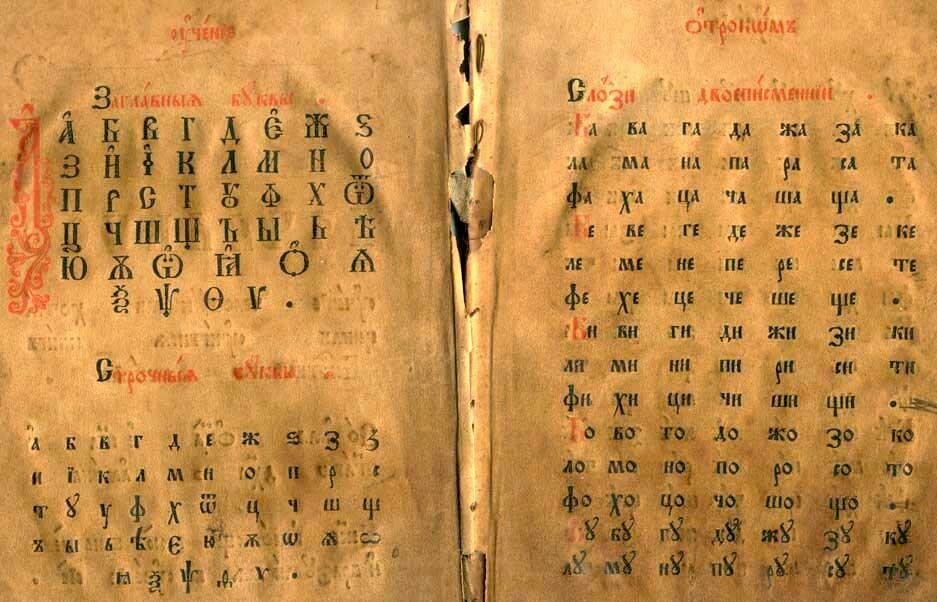 ѹ҆че́нїе
Загла́вныѧ бꙋ́квы .
А҆ Б В Г Д Є҆ Ж Ѕ
З И҆ І҆ К Л М Н О
П Р С Т Ꙋ Ф Х Ѿ
Ц Ч Ш Щ Ъ Ы Ь Ѣ
Ю҆ Ѫ Ѡ҆ Ꙗ҆ О҆ Ѧ
Ѯ Ѱ Ѳ Ѵ .
Стро́чныѧ бꙋ́квы
а б в г д е ж ѕ з
и ї к л м н о п р с
т ꙋ у ф х ѿ ц ч ш щ
ъ ы ь ѣ є ю ѫ ѡ ѧ
ѯ ѱ ѵ .
ѻ҆трокѡ́мъ
Сло́зи двоепи́сменнїи .
Ба ва га да жа за ка
ла ма на па ра са та
фа ха ца ча ша ща .
Бе ве ге де же зе ке
ле ме не пе ре се те
фе хе це че ше ще .
Би ви ги ди жи зи ки
ли ми ни пи ри си ти
фи хи ци чи ши щи .
Бо во го до жо зо ко
ло мо но по ро со то
фо хо цо чо шо що .
Бꙋ вꙋ гꙋ дꙋ жꙋ зꙋ кꙋ
лꙋ мꙋ нꙋ пꙋ рꙋ сꙋ тꙋ